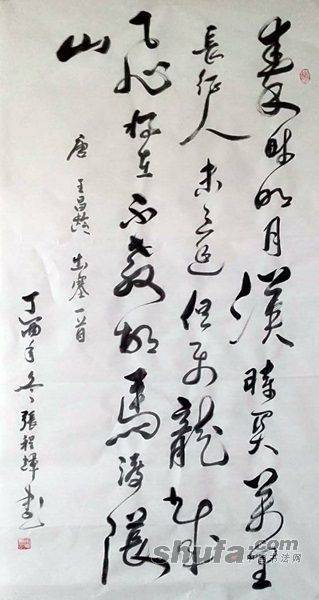 秦時明月漢時关萬里
長征人未還但使龍城
飞將在不教胡馬渡陰
山
唐 王昌齡 出塞一首
丁酉年冬 張程輝書
shufa.com
中国书法网